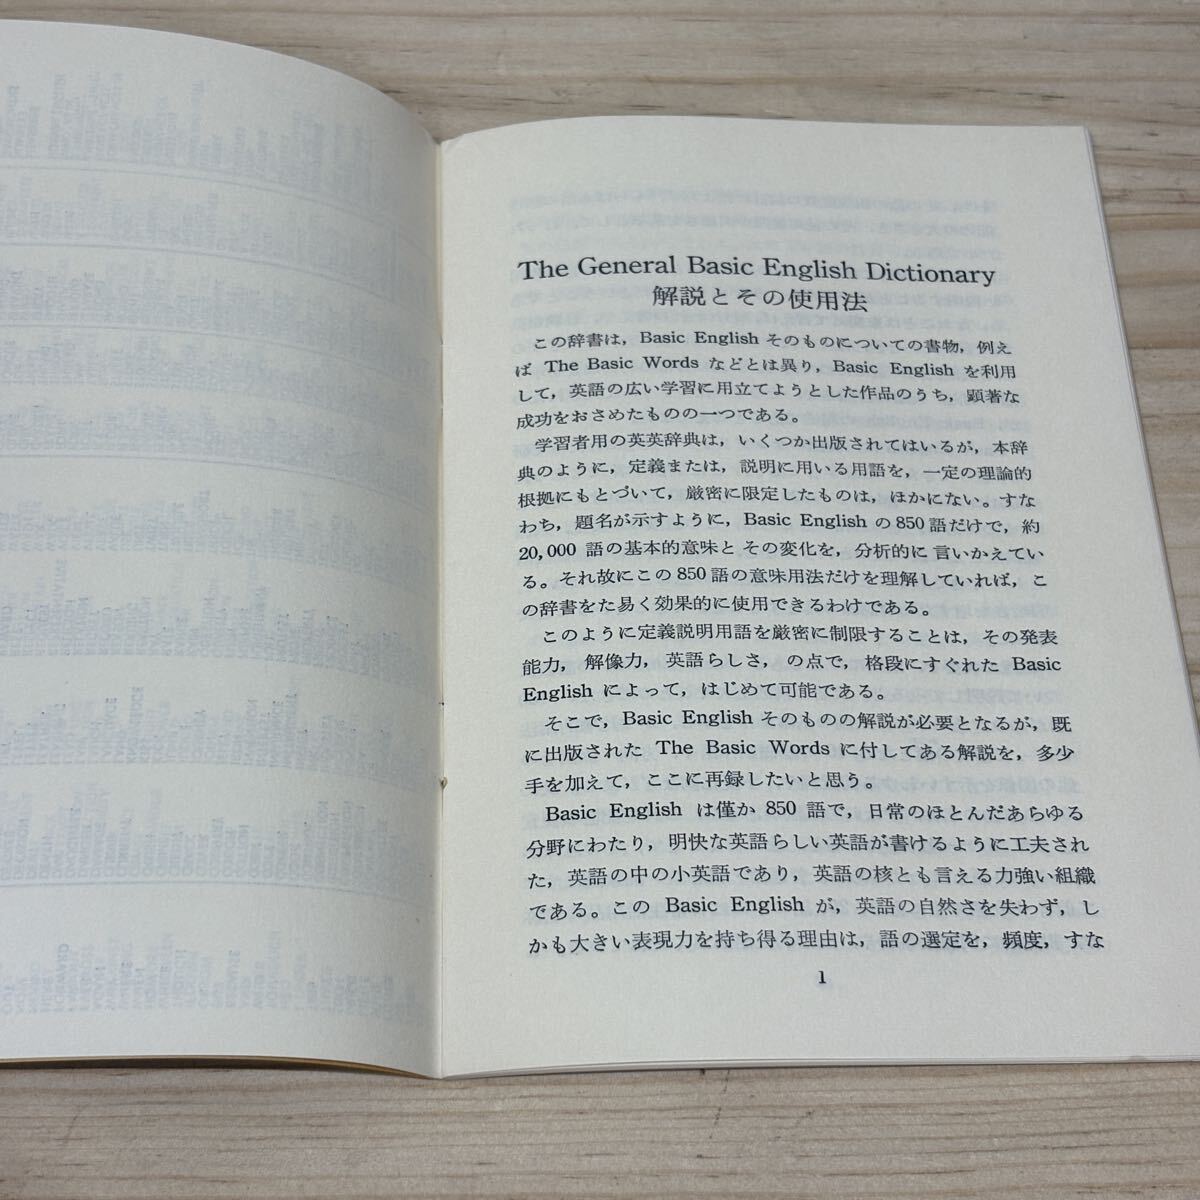 The General Basic English Dictionary
解説とその使用法
この辞書は，Basic English そのものについての書物，例え
ば The Basic Words などとは異り，Basic English を利用
して，英語の広い学習に用立てようとした作品のうち，顕著な
成功をおさめたものの一つである。
学習者用の英英辞典は，いくつか出版されてはいるが，本辞
典のように，定義または，説明に用いる用語を，一定の理論的
根拠にもとづいて，厳密に限定したものは，ほかにない。すな
わち，題名が示すように，Basic English の 850 語だけで，約
20,000 語の基本的意味と その変化を，分析的に 言いかえてい
る。それ故にこの 850 語の意味用法だけを理解していれば，こ
の辞書をた易く効果的に使用できるわけである。
このように定義説明用語を厳密に制限することは，その発表
能力，解像力，英語らしさ，の点で，格段にすぐれた Basic
English によって，はじめて可能である。
そこで，Basic English そのものの解説が必要となるが，既
に出版された The Basic Words に付してある解説を，多少
手を加えて，ここに再録したいと思う。
Basic English は僅か 850 語で，日常のほとんどあらゆる
分野にわたり，明快な英語らしい英語が書けるように工夫され
た，英語の中の小英語であり，英語の核とも言える力強い組織
である。この Basic English が，英語の自然さを失わず，し
かも大きい表現力を持ち得る理由は，語の選定を，頻度，すな
1